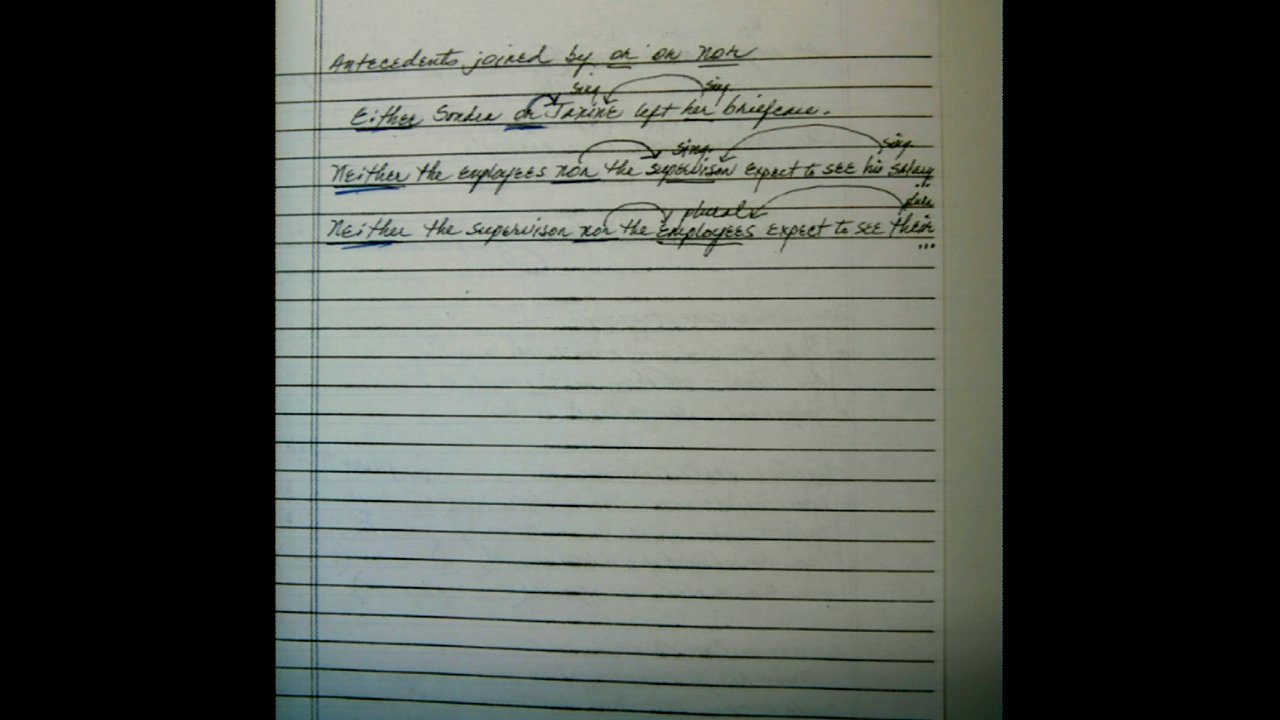 Antecedents joined by or or nor
sing. sing.
Either Sondra or Janine left her briefcase.
sing. sing.
Neither the employees nor the supervisor expect to see his salary
... plural plu
Neither the supervisor nor the employees expect to see their
...